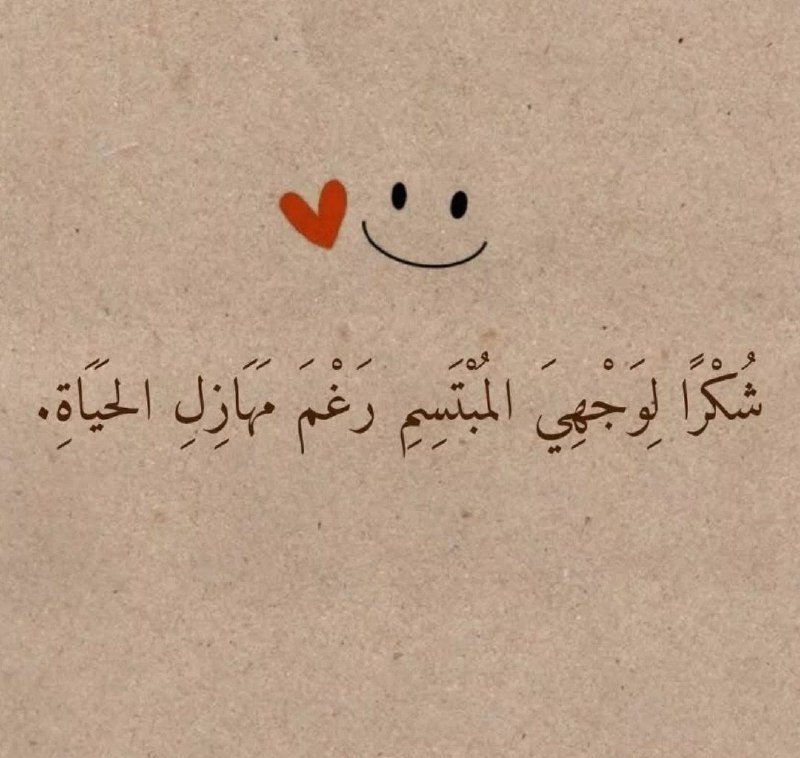 شُكْرًا لِوَجْهِيَ المُبْتَسِمِ رَغْمَ مَهَازِلِ الحَيَاةِ.